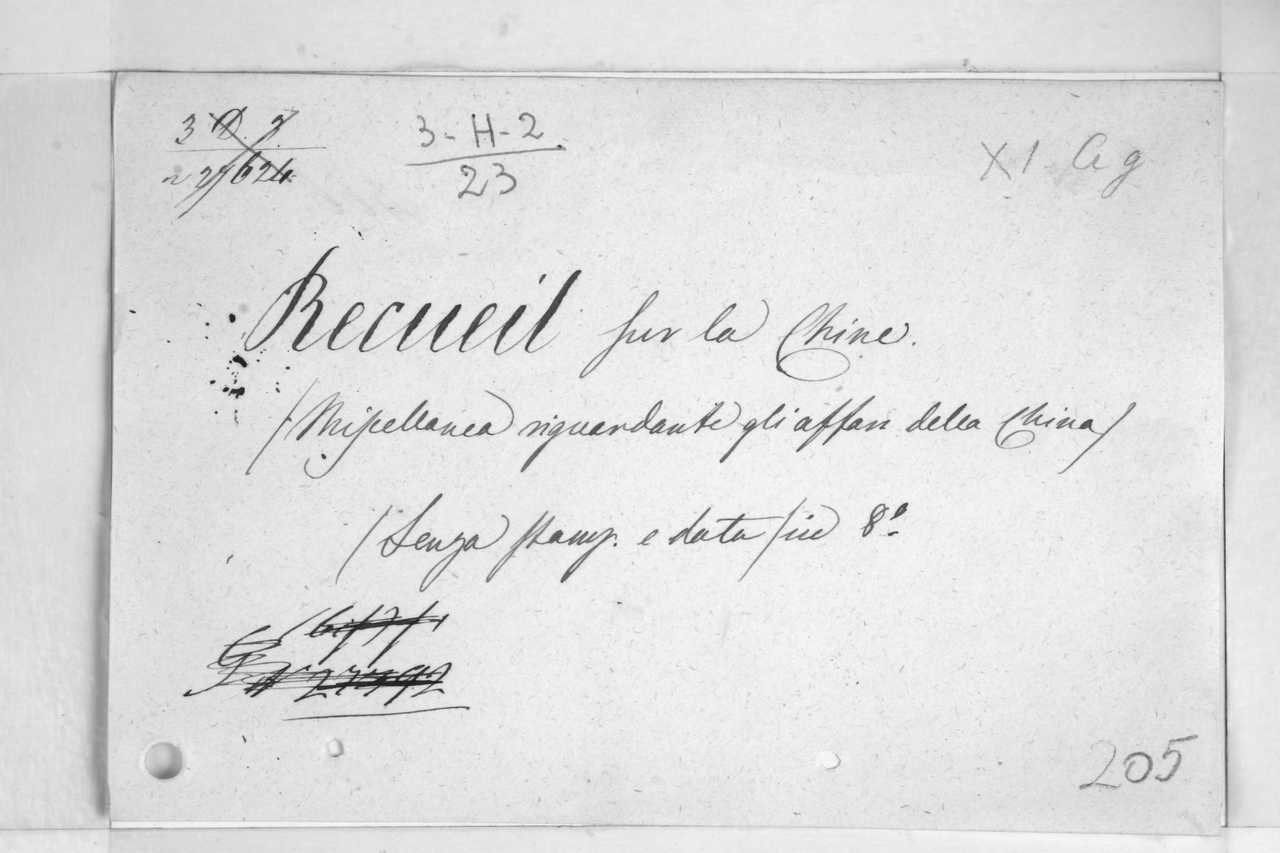 3-H-2
23
X1 Gg
Recueil sur la Chine.
(Miscellanea riguardante gli affari della China)
(Senza stamp. e data) in 8º
205